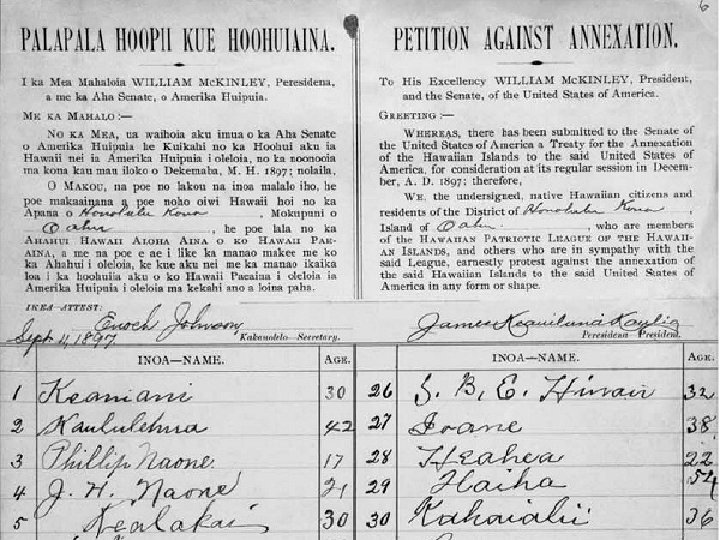 6
PALAPALA HOOPII KUE HOOHUIAINA.
I ka Mea Mahaloia WILLIAM McKINLEY, Peresidena,
a me ka Aha Senate, o Amerika Huipuia.
ME KA MAHALO:—
No KA MEA, ua waihoia aku imua o ka Aha Senate
o Amerika Huipuia he Kuikahi no ka Hoohui aku ia
Hawaii nei ia Amerika Huipuia i oleloia, no ka noonooia
ma kona kau mau iloko o Dekemaba, M. H. 1897; nolaila,
O MAKOU, na poe no lakou na inoa malalo iho, he
poe makaainana a poe noho oiwi Hawaii hoi no ka
Apana o Honolulu Kona, Mokupuni o
Oahu, he poe lala no ka
AHAHUI HAWAII ALOHA AINA O KO HAWAII PAE-
AINA, a me na poe e ae i like ka manao makee me ko
ka Ahahui i oleloia, ke kue aku nei me ka manao ikaika
loa i ka hoohuiia aku o ko Hawaii Paeaina i oleloia ia
Amerika Huipuia i oleloia ma kekahi ano a loina paha.
IKEA—ATTEST:
Sept 11, 1897 Enoch Johnson
Kakauolelo—Secretary.
PETITION AGAINST ANNEXATION.
To His Excellency WILLIAM McKINLEY, President,
and the Senate, of the United States of America.
GREETING:—
WHEREAS, there has been submitted to the Senate of
the United States of America a Treaty for the Annexation
of the Hawaiian Islands to the said United States of
America, for consideration at its regular session in Decem-
ber, A. D. 1897; therefore,
WE, the undersigned, native Hawaiian citizens and
residents of the District of Honolulu Kona,
Island of Oahu, who are members of
the HAWAIIAN PATRIOTIC LEAGUE OF THE HAWAII-
AN ISLANDS, and others who are in sympathy with the
said League, earnestly protest against the annexation of
the said Hawaiian Islands to the said United States of
America in any form or shape.
James Keauiluna Kaulia
Peresidena—President.
INOA—NAME. AGE.
1 Keaniani 30
2 Kaululehua 42
3 Phillip Naone 17
4 J. H. Naone 21
5 Kealakai 30
INOA—NAME. AGE.
26 S. B. E. 32
27 Ioane 38
28 Heahea 22
29 Haiha 54
30 36